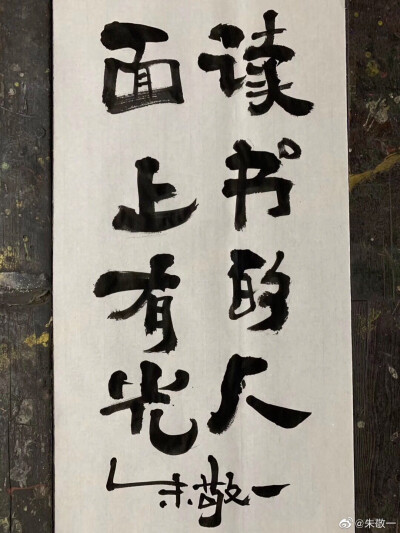 读书的人
面上有光
朱敬一
@朱敬一